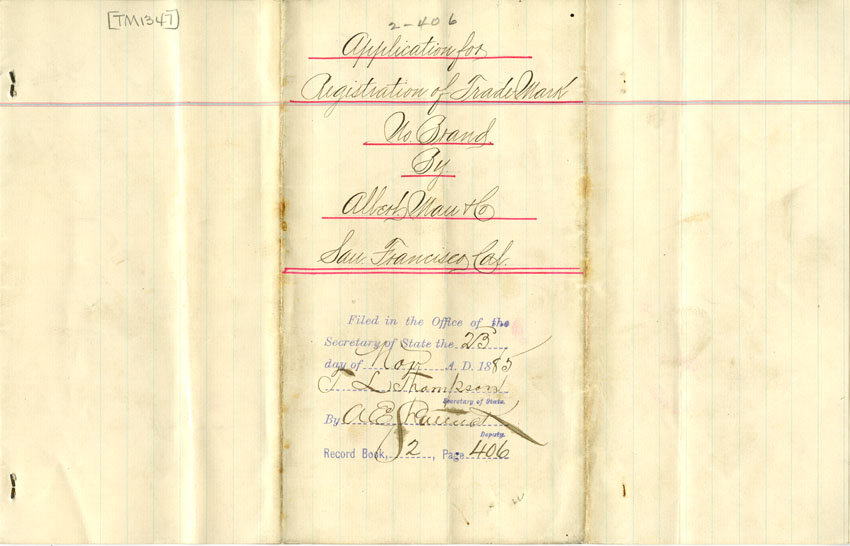 [TM1347]
2-406
Application for
Registration of Trade Mark
No Brand
By
Albert Mau & Co
San Francisco, Cal.
Filed in the Office of the
Secretary of State the 23
day of Nov A. D. 1885
T L Thompson
Secretary of State.
By A E
Deputy.
Record Book, 2, Page 406